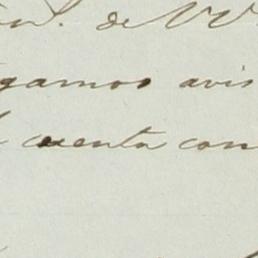 de VV
gamos avis
cuenta con